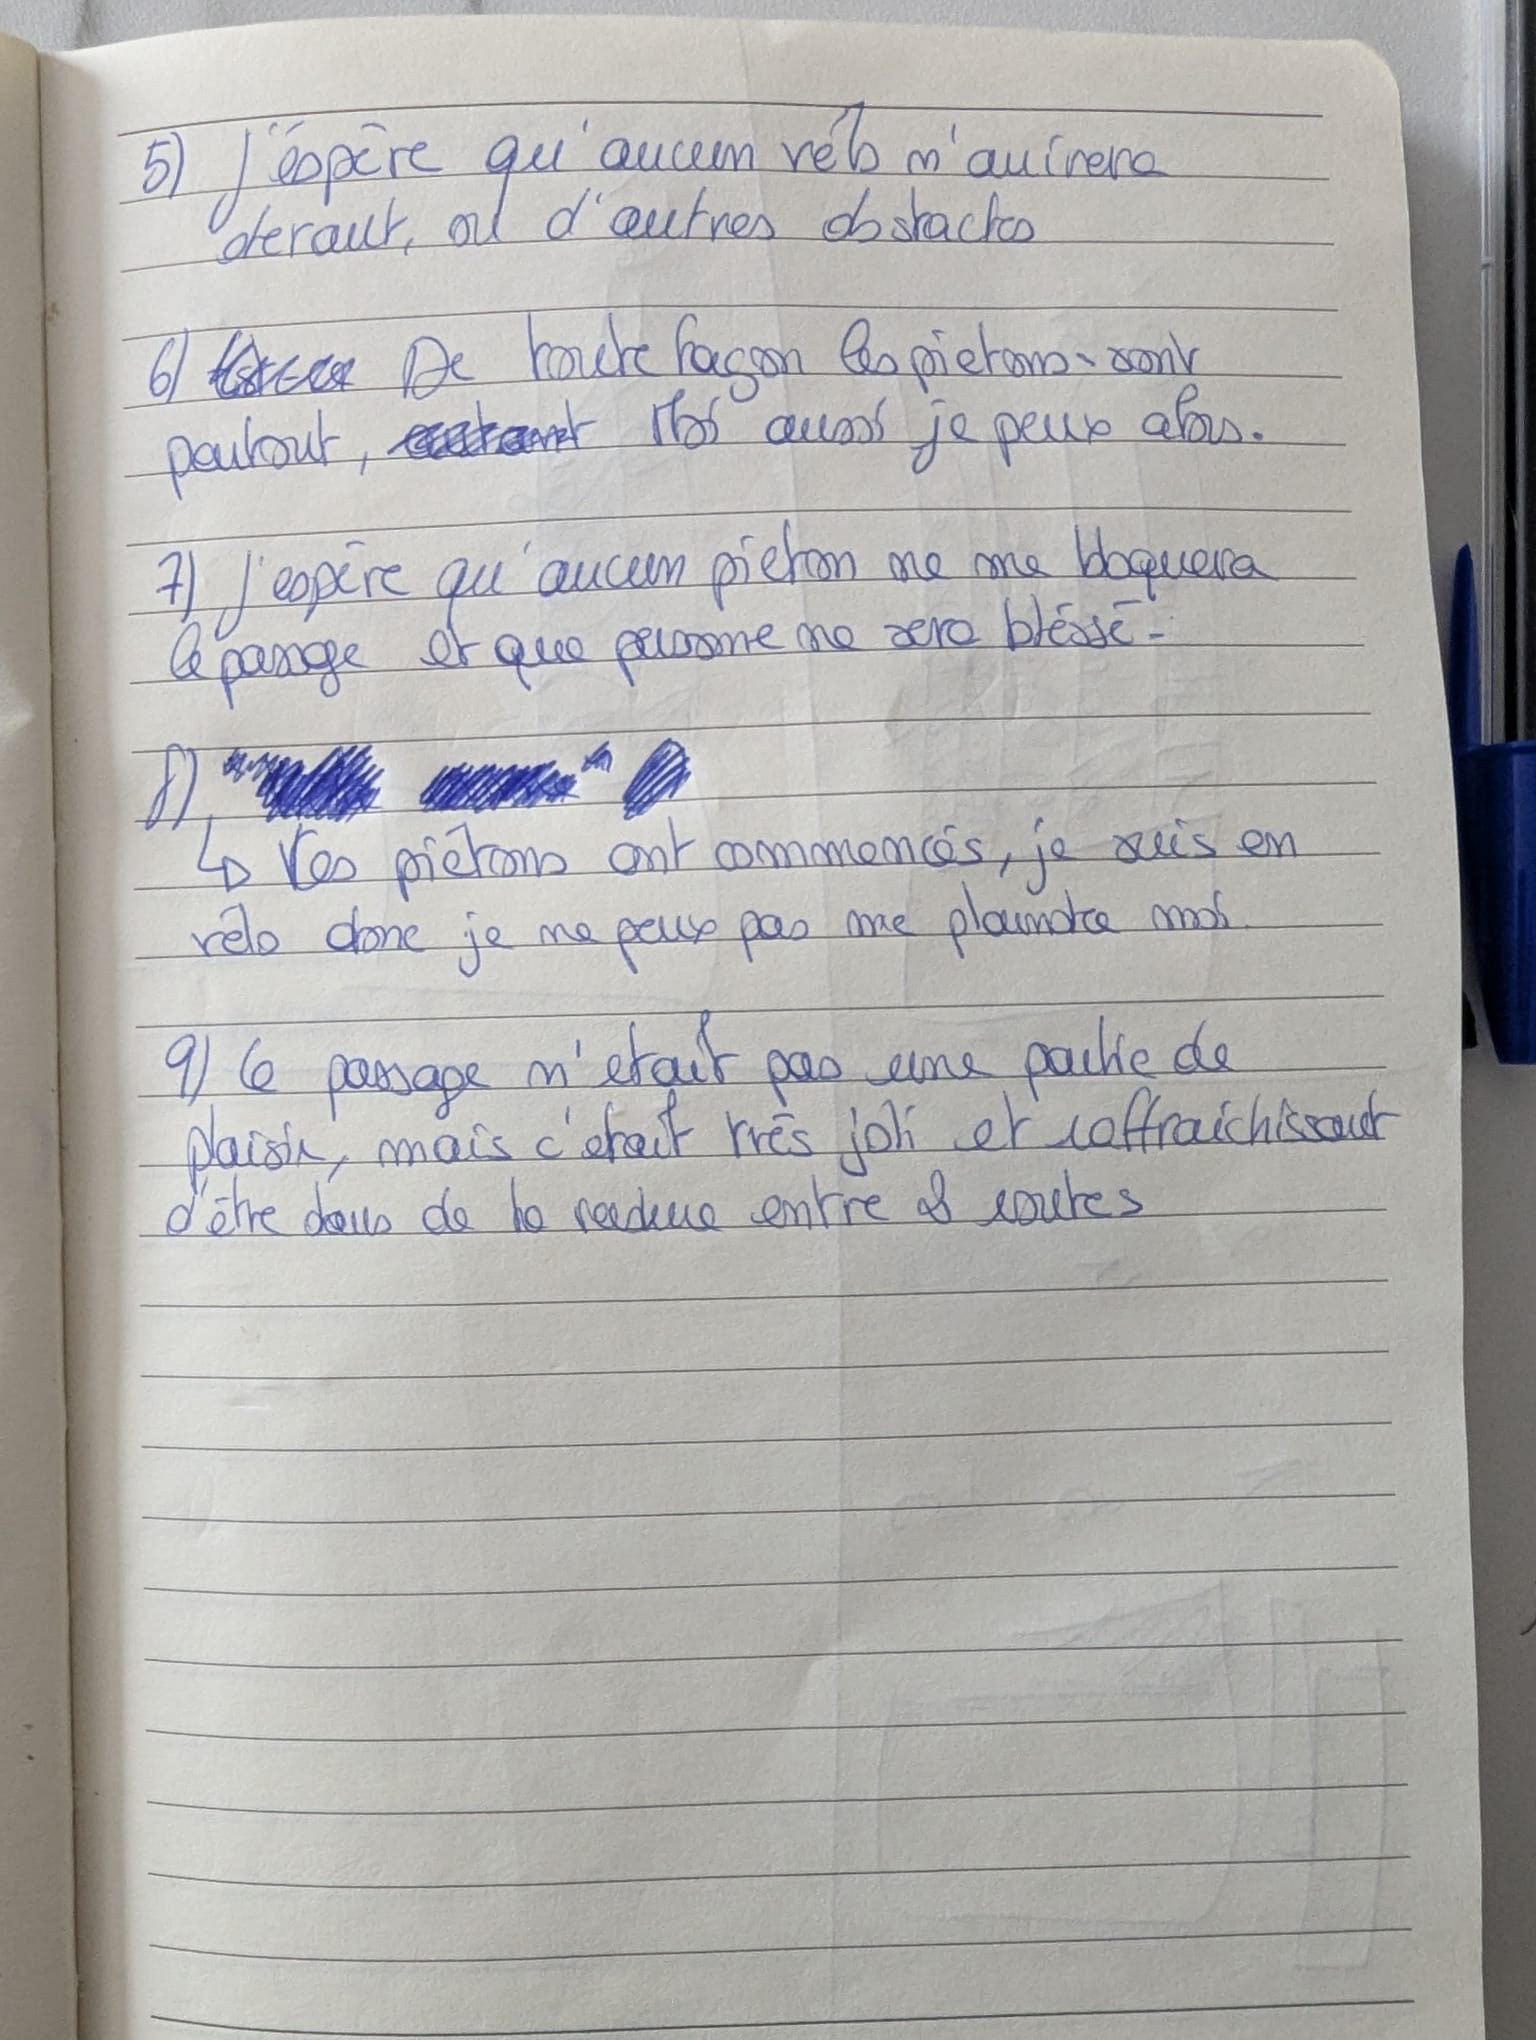 5) J'éspère qu'aucun vélo n'arrivera
devant, ou d'autres obstacles
6) De toute façon les piétons sont
partout, Moi aussi je peux alors.
7) J'espère qu'aucun piéton ne me bloquera
le passage et que personne ne sera bléssé.
8)
↳ Les piétons ont commencés, je suis en
vélo donc je ne peux pas me plaindre moi.
9) Le passage n'était pas une partie de
plaisir, mais c'était très joli et raffraichissant
d'être dans de la verdure entre 2 routes